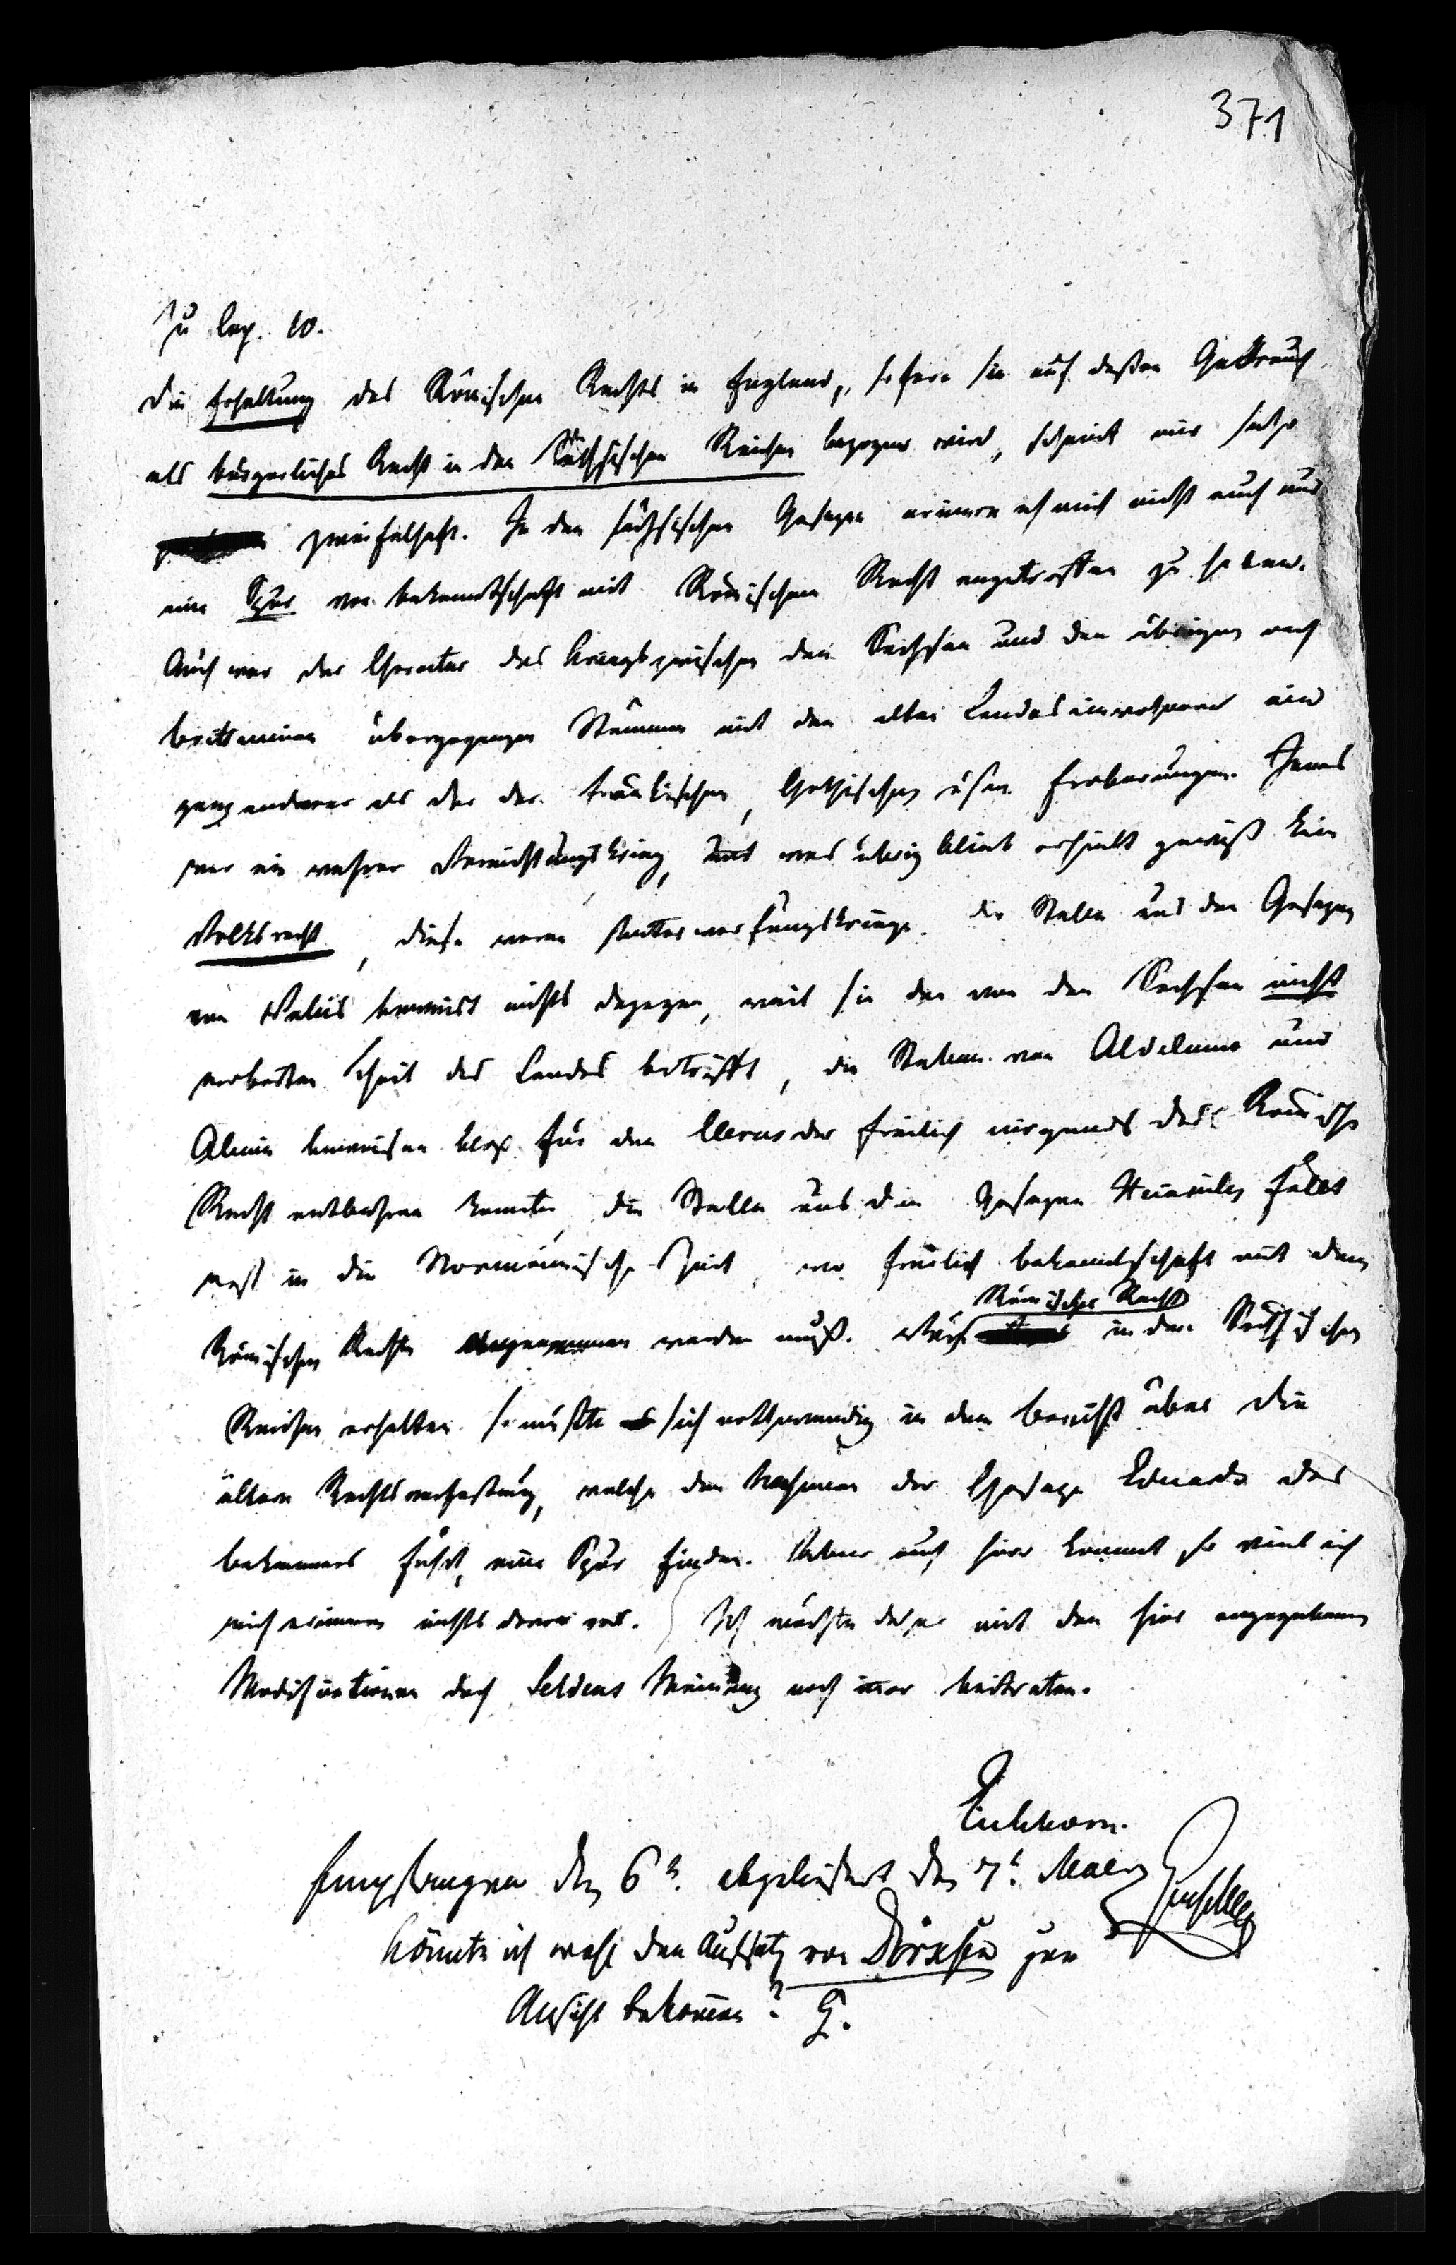 371
Zu Cap. 10.
Die Erhaltung des Römischen Rechts in England, sofern sie auf deßen Gebrauch
als bürgerliches Recht in den Sächsischen Reichen bezogen wird, scheint mir sehr
zweifelhaft. In den sächsischen Gesezen erinnere ich mich nicht auch nur
eine Spur von bekanntschaft mit Römischem Recht angetroffen zu haben.
Auch war der Character des Kriegs zwischen den Sachsen und den übrigen nach
brittannien übergegangnen Stämmen mit den alten Landeseinwohnern ein
ganz anderer als der der fränkischen, Gothischen usw. Eroberungen. Jenes
war ein wahrer Vernichtungskrieg, und was übrig blieb erhielt gewiß kein
Volksrecht, diese waren Unterwerfungskriege. Die Stelle aus den Gesezen
von Wales beweist nichts dagegen, weil sie den von den Sachsen nicht
eroberten Theil des Landes betrifft, die Stellen von Aldelmus und
Alcuin beweisen blos für den Clerus der freilich nirgends das Römische
Recht entbehren konnte, die Stelle aus den Gesezen Heinrichs fällt
erst in die Normännische Zeit, wo freilich bekanntschaft mit dem
Römischen Rechte angenommen werden muß. Wäre Römisches Recht in den Sächsischen
Reichen erhalten so müßte sich nothwendig in dem bericht über die
ältere Rechtsverfaßung, welche den Nahmen der Geseze Eduards des
bekenners führt, eine Spur finden. Aber auch hier kommt so viel ich
mich erinnere nichts davon vor. Ich möchte daher mit den hier angegebenen
Modificationen doch Seldens Meinung noch immer beitreten.
Eichhorn.
Empfangen den 6t. abgeliefert den 7t. Maerz Goeschen
Könnte ich wohl den Aufsatz von Dirksen zur
Ansicht bekommen? G.